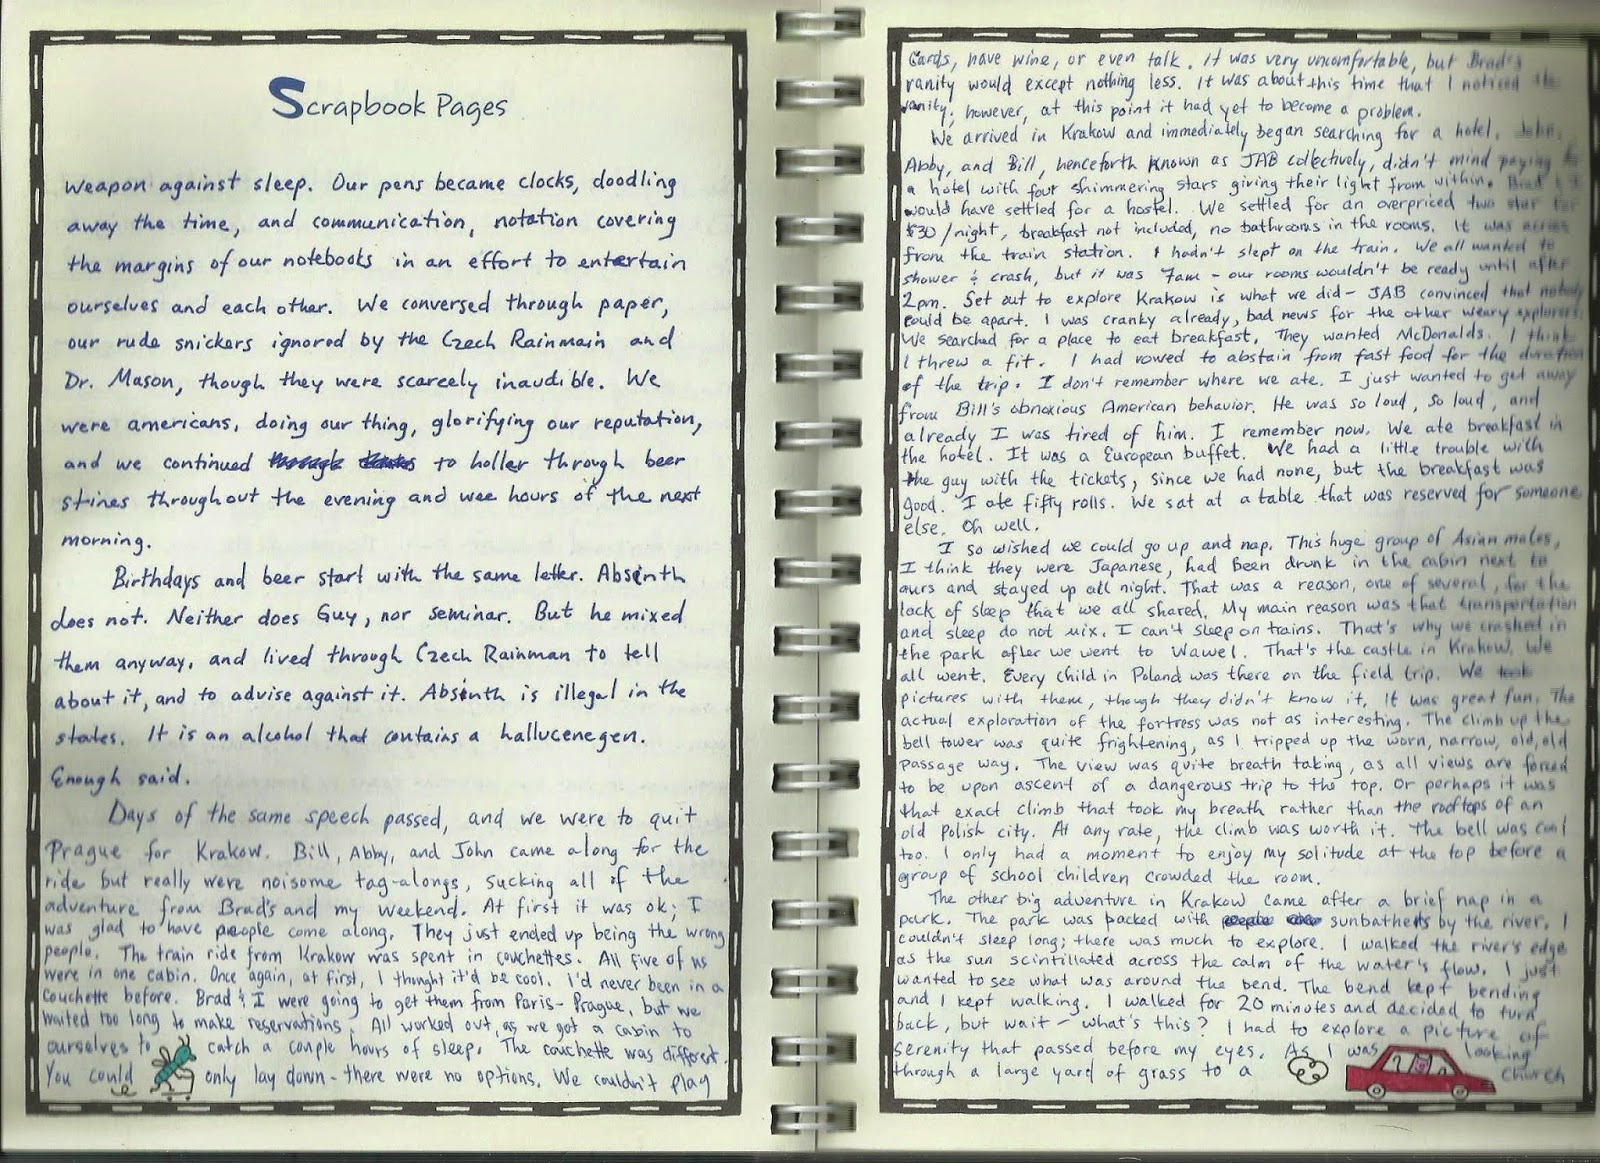 Scrapbook Pages
weapon against sleep. Our pens became clocks, doodling
away the time, and communication, notation covering
the margins of our notebooks in an effort to entertain
ourselves and each other. We conversed through paper,
our rude snickers ignored by the Czech Rainmain and
Dr. Mason, though they were scarcely inaudible. We
were americans, doing our thing, glorifying our reputation,
and we continued to holler through beer
stines throughout the evening and wee hours of the next
morning.
Birthdays and beer start with the same letter. Absinth
does not. Neither does Guy, nor seminar. But he mixed
them anyway, and lived through Czech Rainman to tell
about it, and to advise against it. Absinth is illegal in the
states. It is an alcohol that contains a hallucenegen.
Enough said.
Days of the same speech passed, and we were to quit
Prague for Krakow. Bill, Abby, and John came along for the
ride but really were noisome tag-alongs, sucking all of the
adventure from Brad's and my weekend. At first it was ok; I
was glad to have people come along. They just ended up being the wrong
people. The train ride from Krakow was spent in couchettes. All five of us
were in one cabin. Once again, at first, I thought it'd be cool. I'd never been in a
couchette before. Brad & I were going to get them from Paris-Prague, but we
waited too long to make reservations. All worked out, as we got a cabin to
ourselves to catch a couple hours of sleep. The couchette was different.
You could only lay down - there were no options. We couldn't play
Cards, have wine, or even talk. It was very uncomfortable, but Brad's
vanity would except nothing less. It was about this time that I noticed the
vanity; however, at this point it had yet to become a problem.
We arrived in Krakow and immediately began searching for a hotel. John,
Abby, and Bill, henceforth known as JAB collectively, didn't mind paying
a hotel with four shimmering stars giving their light from within. Brad & I
would have settled for a hostel. We settled for an overpriced two star for
$30/night, breakfast not included, no bathrooms in the rooms. It was across
from the train station. I hadn't slept on the train. We all wanted to
shower & crash, but it was 7am - our rooms wouldn't be ready until after
2pm. Set out to explore Krakow is what we did - JAB convinced that nobody
could be apart. I was cranky already, bad news for the other weary explorers.
We searched for a place to eat breakfast. They wanted McDonalds. I think
I threw a fit. I had vowed to abstain from fast food for the duration
of the trip. I don't remember where we ate. I just wanted to get away
from Bill's obnoxious American behavior. He was so loud, so loud, and
already I was tired of him. I remember now. We ate breakfast in
the hotel. It was a European buffet. We had a little trouble with
the guy with the tickets, since we had none, but the breakfast was
good. I ate fifty rolls. We sat at a table that was reserved for someone
else. Oh well.
I so wished we could go up and nap. This huge group of Asian males,
I think they were Japanese, had been drunk in the cabin next to
ours and stayed up all night. That was a reason, one of several, for the
lack of sleep that we all shared. My main reason was that transportation
and sleep do not mix. I can't sleep on trains. That's why we crashed in
the park after we went to Wawel. That's the castle in Krakow. We
all went. Every child in Poland was there on the field trip. We took
pictures with them, though they didn't know it. It was great fun. The
actual exploration of the fortress was not as interesting. The climb up the
bell tower was quite frightening, as I tripped up the worn, narrow, old, old
passage way. The view was quite breath taking, as all views are forced
to be upon ascent of a dangerous trip to the top. Or perhaps it was
that exact climb that took my breath rather than the rooftops of an
old Polish city. At any rate, the climb was worth it. The bell was cool
too. I only had a moment to enjoy my solitude at the top before a
group of school children crowded the room.
The other big adventure in Krakow came after a brief nap in a
park. The park was packed with sunbathers by the river. I
couldn't sleep long; there was much to explore. I walked the river's edge
as the sun scintillated across the calm of the water's flow. I just
wanted to see what was around the bend. The bend kept bending
and I kept walking. I walked for 20 minutes and decided to turn
back, but wait - what's this? I had to explore a picture of
serenity that passed before my eyes. As I was looking
through a large yard of grass to a church